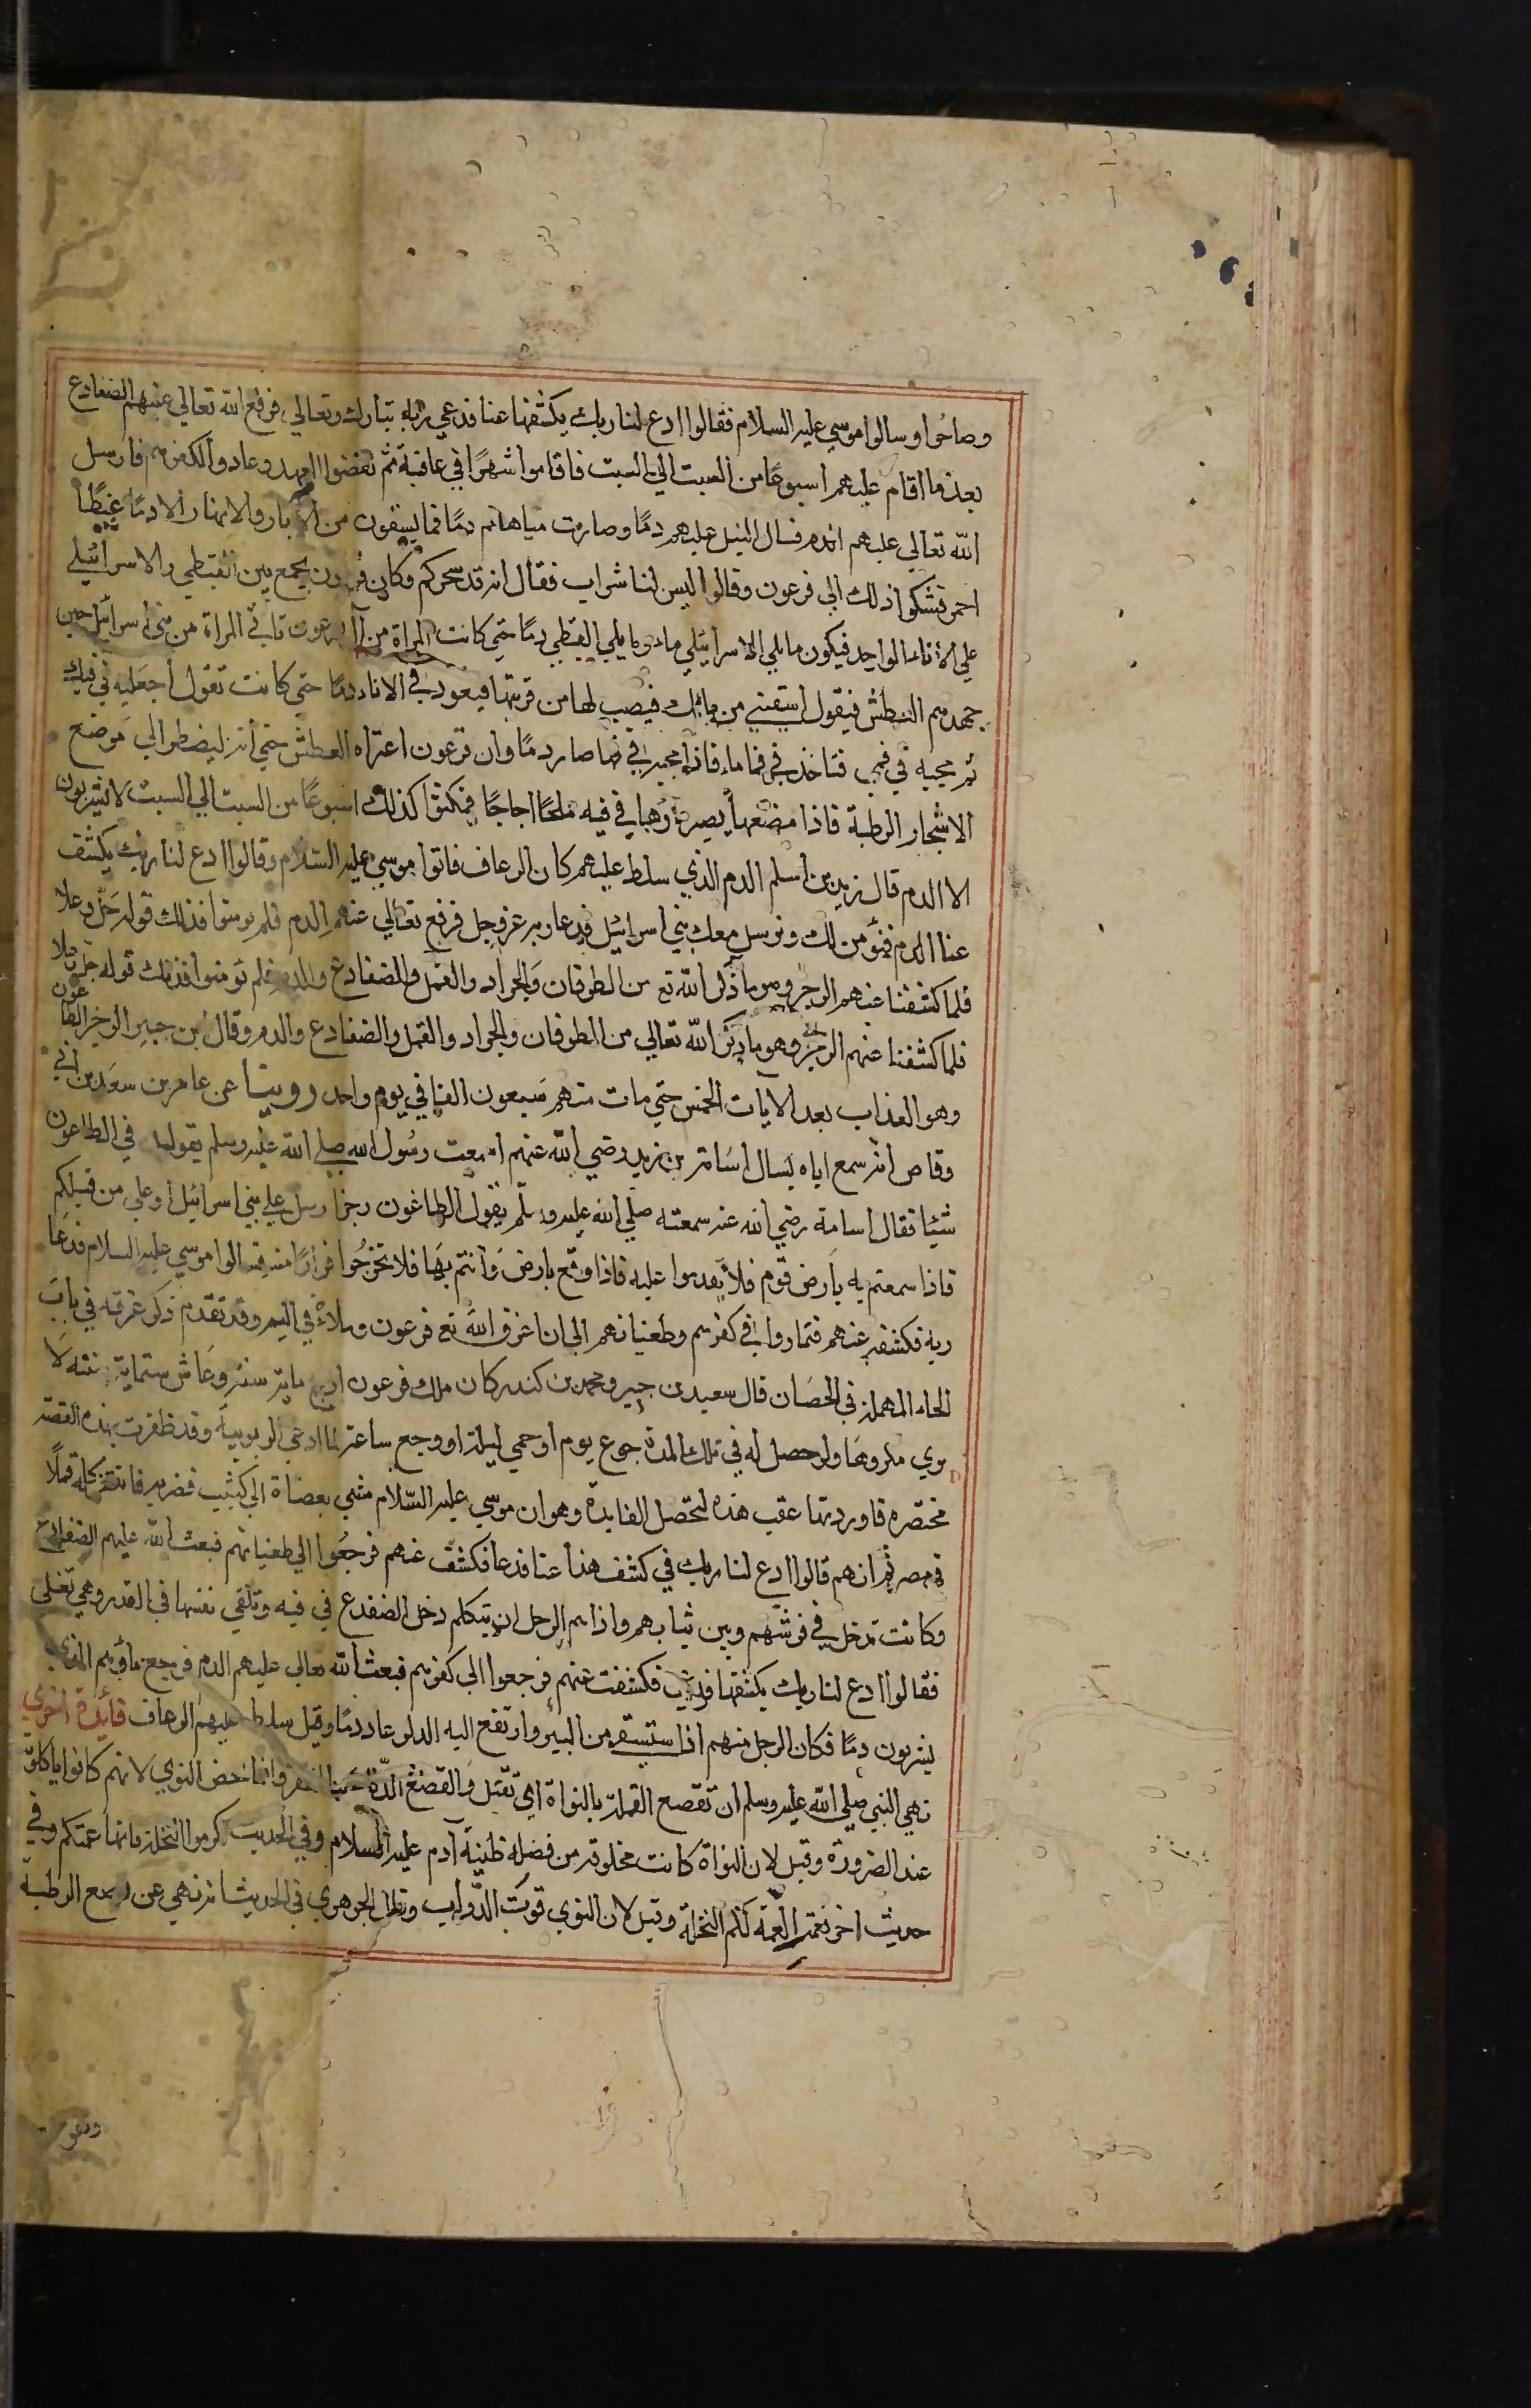 وصاحوا وسالوا موسي عليه السلام فقالوا ادع لنا ربك يكشفها عنا فدعي ربه تبارك وتعالي فرفع الله تعالي عنهم الضفادع
بعد ما اقام عليهم اسبوعًا من السبت الي السبت فاقاموا شهرًا في عافية ثم نقضوا العهد وعادوا لكفرهم فارسل
الله تعالي عليهم الدم فسال النيل عليهم دمًا وصارت مياههم دمًا فما يسقون من الابار والانهار الا دمًا عبيطًا
احمر فشكوا ذلك الي فرعون وقالوا ليس لنا شراب فقال انه قد سحركم وكان فرعون يجمع بين القبطي والاسرائيلي
علي الاناء الواحد فيكون ما يلي الاسرائيلي ماء وما يلي القبطي دمًا حتي كانت المراة من آل فرعون تاتي المراة من بني اسرائيل حين
جهدهم العطش فيقول اسقني من مائك فيصب لها من قربتها فيعود في الاناء دمًا حتي كانت تقول اجعليه في فيك
ثم مجيه في فمي فتاخذ في فمها ماء فاذا مجته في فمها صار دمًا وان فرعون اعتراه العطش حتي انه ليضطر الي موضع
الاشجار الرطبة فاذا مضغها يصير ماؤها في فيه ملحًا اجاجًا فمكثوا كذلك اسبوعًا من السبت الي السبت لا يشربون
الا الدم قال زيد بن اسلم الدم الذي سلط عليهم كان الرعاف فاتوا موسي عليه السلام وقالوا ادع لنا ربك يكشف
عنا الدم فنؤمن لك ونرسل معك بني اسرائيل فدعا ربه عز وجل فرفع تعالي عنهم الدم فلم يومنوا فذلك قوله جل وعلا
فلما كشفنا عنهم الرجز وهو ما ذكر الله تع من الطوفان والجراد والقمل والضفادع والدم فلم يؤمنوا فذلك قوله جل وعلا
فلما كشفنا عنهم الرجز وهو ما ذكر الله تعالي من الطوفان والجراد والقمل والضفادع والدم وقال بن جبير الرجز الطاعون
وهو العذاب بعد الايات الخمس حتي مات منهم سبعون الفا في يوم واحد روينا عن عامر بن سعد بن ابي
وقاص انه سمع اباه يسال اسامة بن زيد رضي الله عنهم اسمعت رسول الله صلي الله عليه وسلم يقول في الطاعون
شيئا فقال اسامة رضي الله عنه سمعته صلي الله عليه وسلم يقول الطاعون رجز ارسل علي بني اسرائيل او علي من قبلكم
فاذا سمعتم به بارض قوم فلا تقدموا عليه فاذا وقع بارض وانتم بها فلا تخرجوا فرارًا منه فسالوا موسي عليه السلام فدعا
ربه فكشفه عنهم فتمادوا في كفرهم وطغيانهم الي ان اغرق الله تع فرعون وملاءه في اليم وقد تقدم ذكر غرقه في باب
الحاء المهملة في الحصان قال سعيد بن جبير ومحمد بن كندر كان ملك فرعون اربع ماية سنة وعاش ستماية سنة لا
يري مكروها ولو حصل له في تلك المدة جوع يوم او حمي ليلة او وجع ساعة لما ادعي الربوبية وقد ظفرت بهذه القصة
مختصره فاوردتها عقب هذه لتحصل الفايدة وهو ان موسي عليه السلام مشي بعصاه الي كثيب فضربه فانتثر كله قملًا
في مصر ثم انهم قالوا ادع لنا ربك في كشف هذا عنا فدعا فكشف عنهم فرجعوا الي طغيانهم فبعث الله عليهم الضفادع
وكانت تدخل في فرشهم وبين ثيابهم واذا هم الرجل ان يتكلم دخل الضفدع في فيه وتلقي نفسها في القدر وهي تغلي
فقالوا ادع لنا ربك يكشفها فدعي فكشفت عنهم فرجعوا الي كفرهم فبعث الله تعالي عليهم الدم فرجع ماؤهم الذي
يشربون دمًا فكان الرجل منهم اذا استسقي من البئر وارتفع اليه الدلو عاد دمًا وقيل سلط عليهم الرعاف فائدة اخري
نهي النبي صلي الله عليه وسلم ان تقصع القملة بالنواة اي تقتل والقصع الدلك بالظفر وانما خص النوي لانهم كانوا ياكلونه
عند الضرورة وقيل لان النواة كانت مخلوقة من فضلة طينة آدم عليه السلام وفي الحديث اكرموا النخلة فانها عمتكم وفي
حديث اخر نعمت العمة لكم النخلة وقيل لان النوي قوت الدواب وقال الجوهري في الحديث انه نهي عن الرطبة